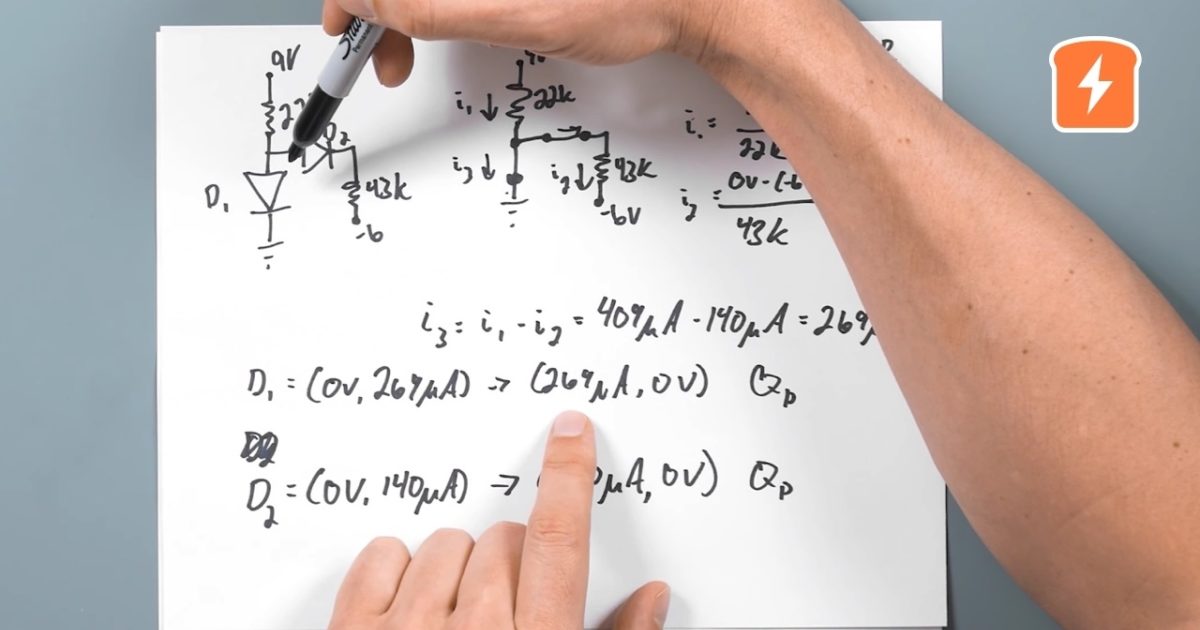 9V
D₁
D₂
43k
-6
i₁ ↓
22k
i₃ ↓
i₂ ↓
43k
-6V
i₁ =
22k
i₂ = 0V-(-6
43k
i₃ = i₁ - i₂ = 409μA - 140μA = 269μ
D₁ = (0V, 269μA) → (269μA, 0V) Qp
D₂ = (0V, 140μA) → ( μA, 0V) Qp